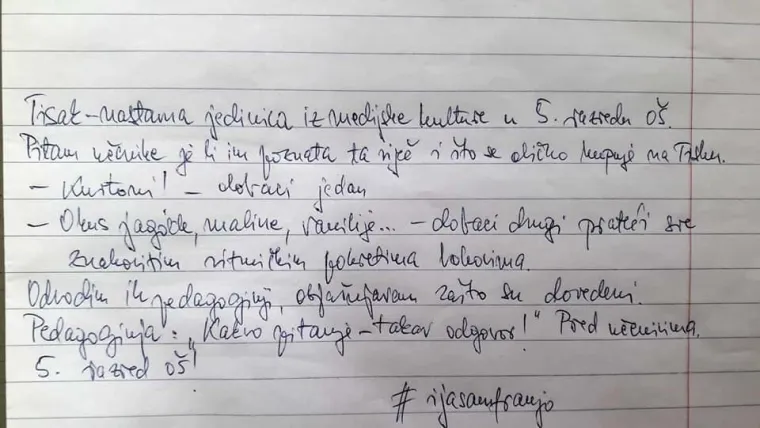 Tisak – nastavna jedinica iz medijske kulture u 5. razredu OŠ.
Pitam učenike je li im poznata ta riječ i što se obično kupuje na Tisku.
– Kurtoni! – dobaci jedan
– Okus jagode, maline, vanilije... – dobaci drugi prateći sve
znakovitim ritmičkim pokretima bokovima.
Odvodim ih pedagoginji, objašnjavam zašto su dovedeni.
Pedagoginja: „Kakvo pitanje – takav odgovor!" Pred učenicima.
5. razred OŠ!
# ijasamfranjo